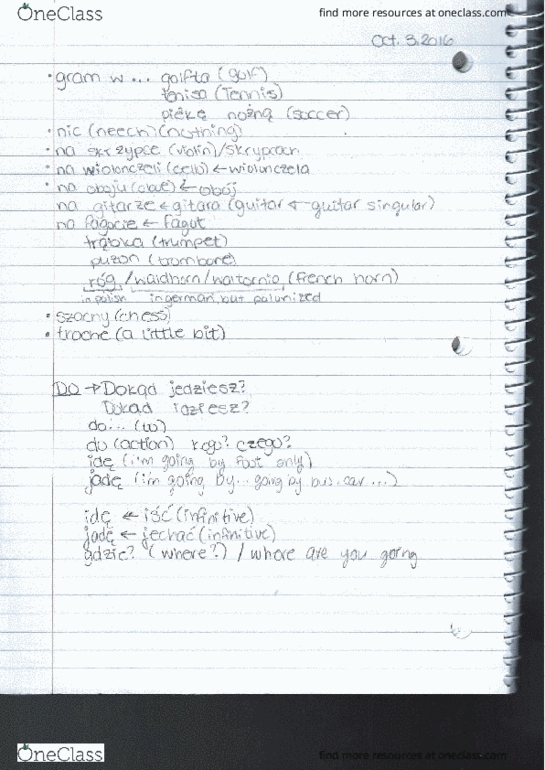 OneClass
find more resources at oneclass.com
Oct. 3. 2016
• gram w ... golfta (golf)
tenisa (Tennis)
piękę nożną (soccer)
• nic (neech) (nothing)
• na skrzypce (violin)/skrypcach
• na wiolonczeli (cello) ← wiolonczela
• na oboju (oboe) ← obój
na gitarze ← gitara (guitar ← guitar singular)
na fagocie ← fagot
trąbka (trumpet)
puzon (trombone)
róg /waldhorn/waltornia (french horn)
in polish in german, but polunized
• szachy (chess)
• troche (a little bit)
DO → Dokąd jedziesz?
Dokąd idziesz?
do... (to)
do (action) kogo? czego?
idę (i'm going by foot only)
jadę (i'm going by... going by bus, car ...)
idę ← iść (infinitive)
jadę ← jechać (infinitive)
gdzie? (where?) / where are you going
OneClass
find more resources at oneclass.com